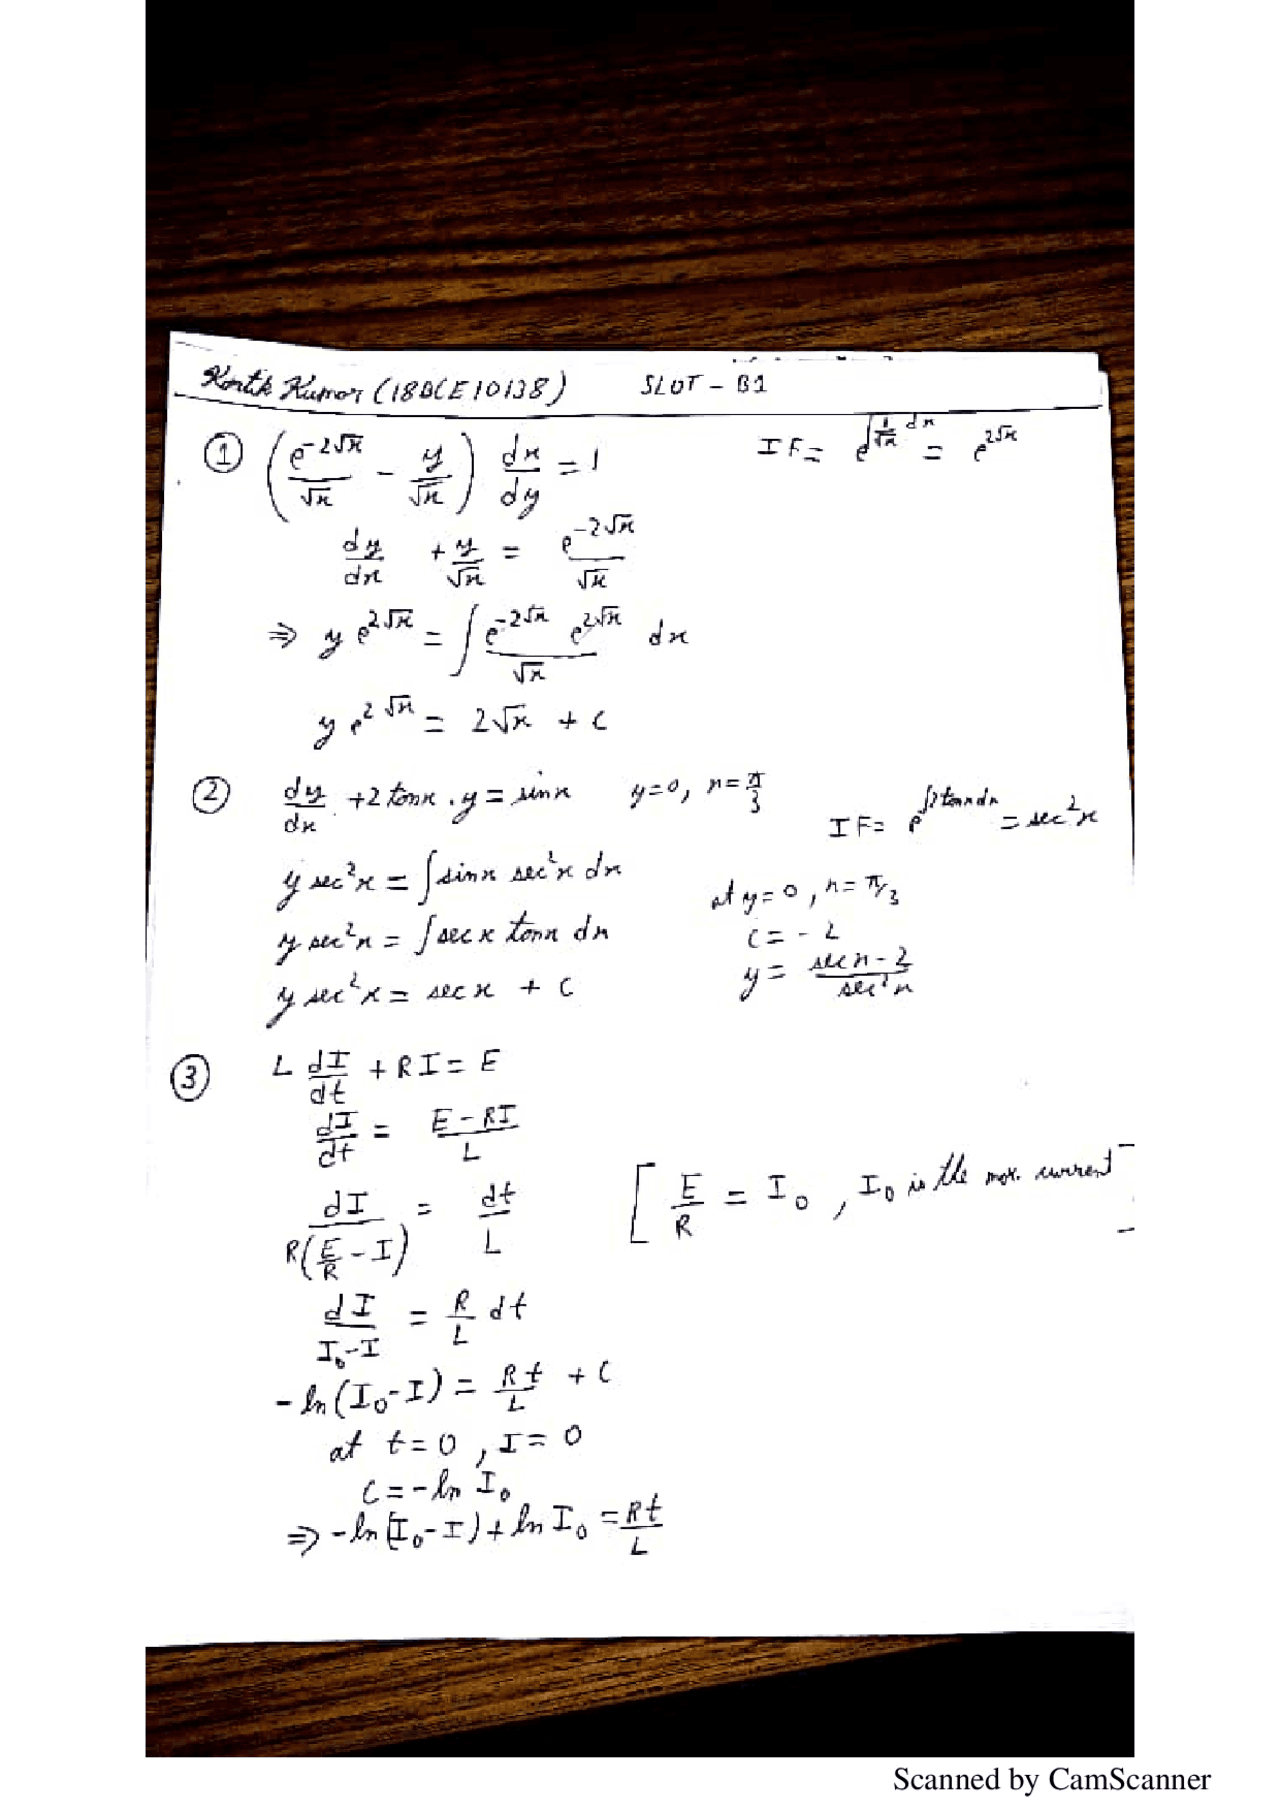 Kartik Kumar (18BCE10138) SLOT - B1
① (e^{-2√x}/√x - y/√x) dx/dy = 1 IF = e^{∫1/√x dx} = e^{2√x}
dy/dx + y/√x = e^{-2√x}/√x
⇒ y e^{2√x} = ∫ e^{-2√x} e^{2√x}/√x dx
y e^{2√x} = 2√x + c
② dy/dx + 2 tanx . y = sinx y=0, x=π/3 IF = e^{∫2tanxdx} = sec²x
y sec²x = ∫ sinx sec²x dx at y=0, x=π/3
y sec²x = ∫ secx tanx dx c = -2
y sec²x = secx + c y = (secx - 2)/sec²x
③ L dI/dt + RI = E
dI/dt = (E - RI)/L
dI/R(E/R - I) = dt/L [E/R = I₀, I₀ is the max. current]
dI/(I₀-I) = R/L dt
-ln(I₀-I) = Rt/L + c
at t=0, I=0
c = -ln I₀
⇒ -ln(I₀-I) + ln I₀ = Rt/L
Scanned by CamScanner